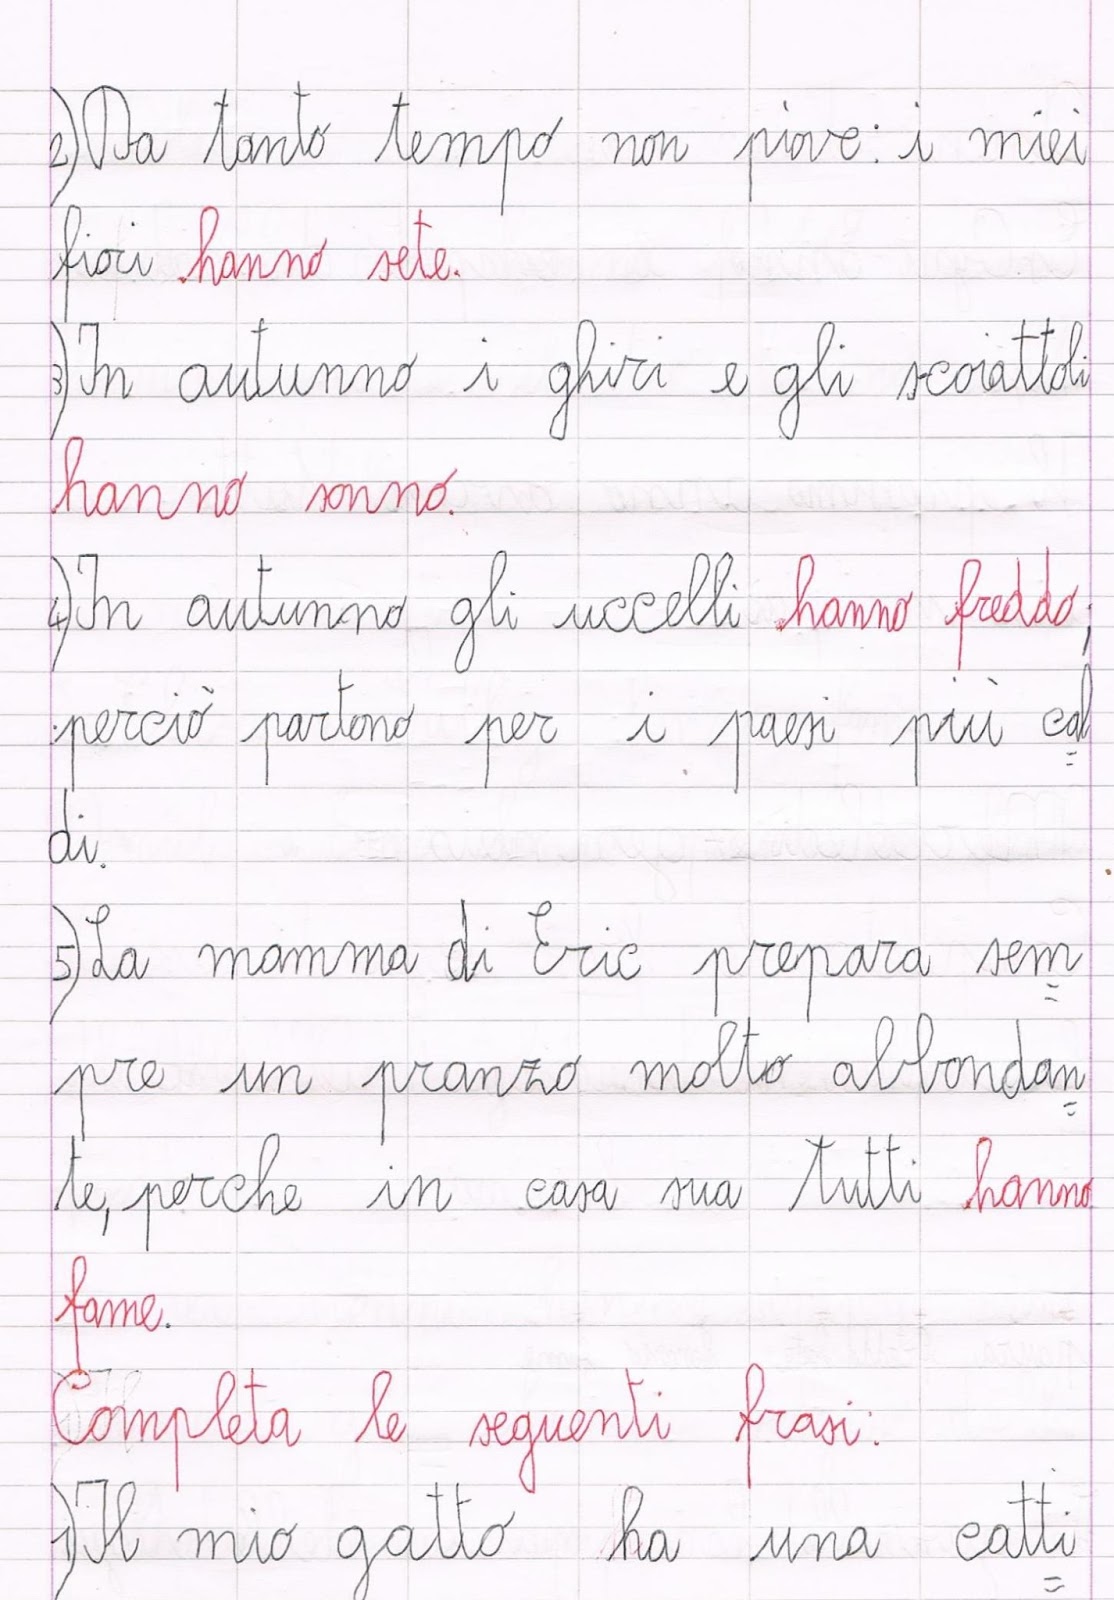 2) Da tanto tempo non piove: i miei
fiori hanno sete.
3) In autunno i ghiri e gli scoiattoli
hanno sonno.
4) In autunno gli uccelli hanno freddo,
perciò partono per i paesi più cal=
di.
5) La mamma di Eric prepara sem=
pre un pranzo molto abbondan=
te, perche in casa sua tutti hanno
fame.
Completa le seguenti frasi:
1) Il mio gatto ha una catti=